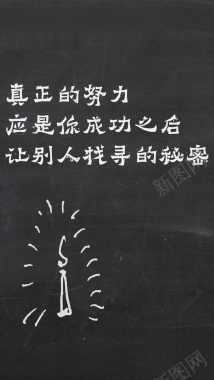 真正的努力
应是你成功之后
让别人找寻的秘密
新图网
新图网